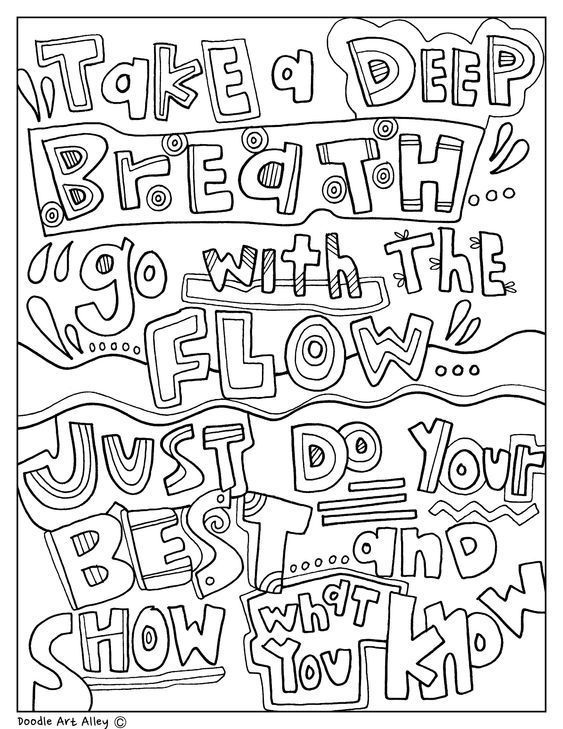 Take a DEEP
BrEaTH...
go with THE
FLOW...
JUST DO Your
BEST.....and
SHOW what you know
Doodle Art Alley ©